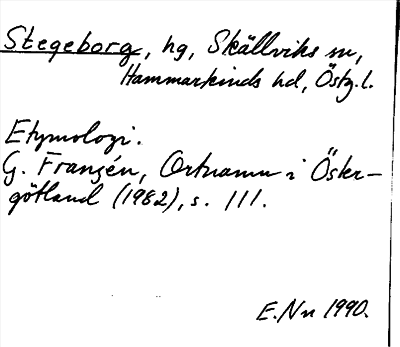 Stegeborg, hg, Skällviks sn,
Hammarkinds hd, Östg.l.
Etymologi.
G. Franzén, Ortnamn i Öster-
götland (1982), s. 111.
E.Nn 1990.